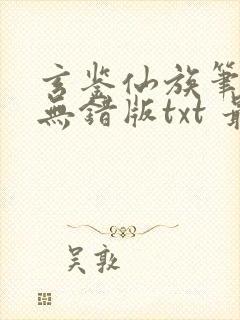 玄鉴仙族筆
無錯版txt 最
吴敦